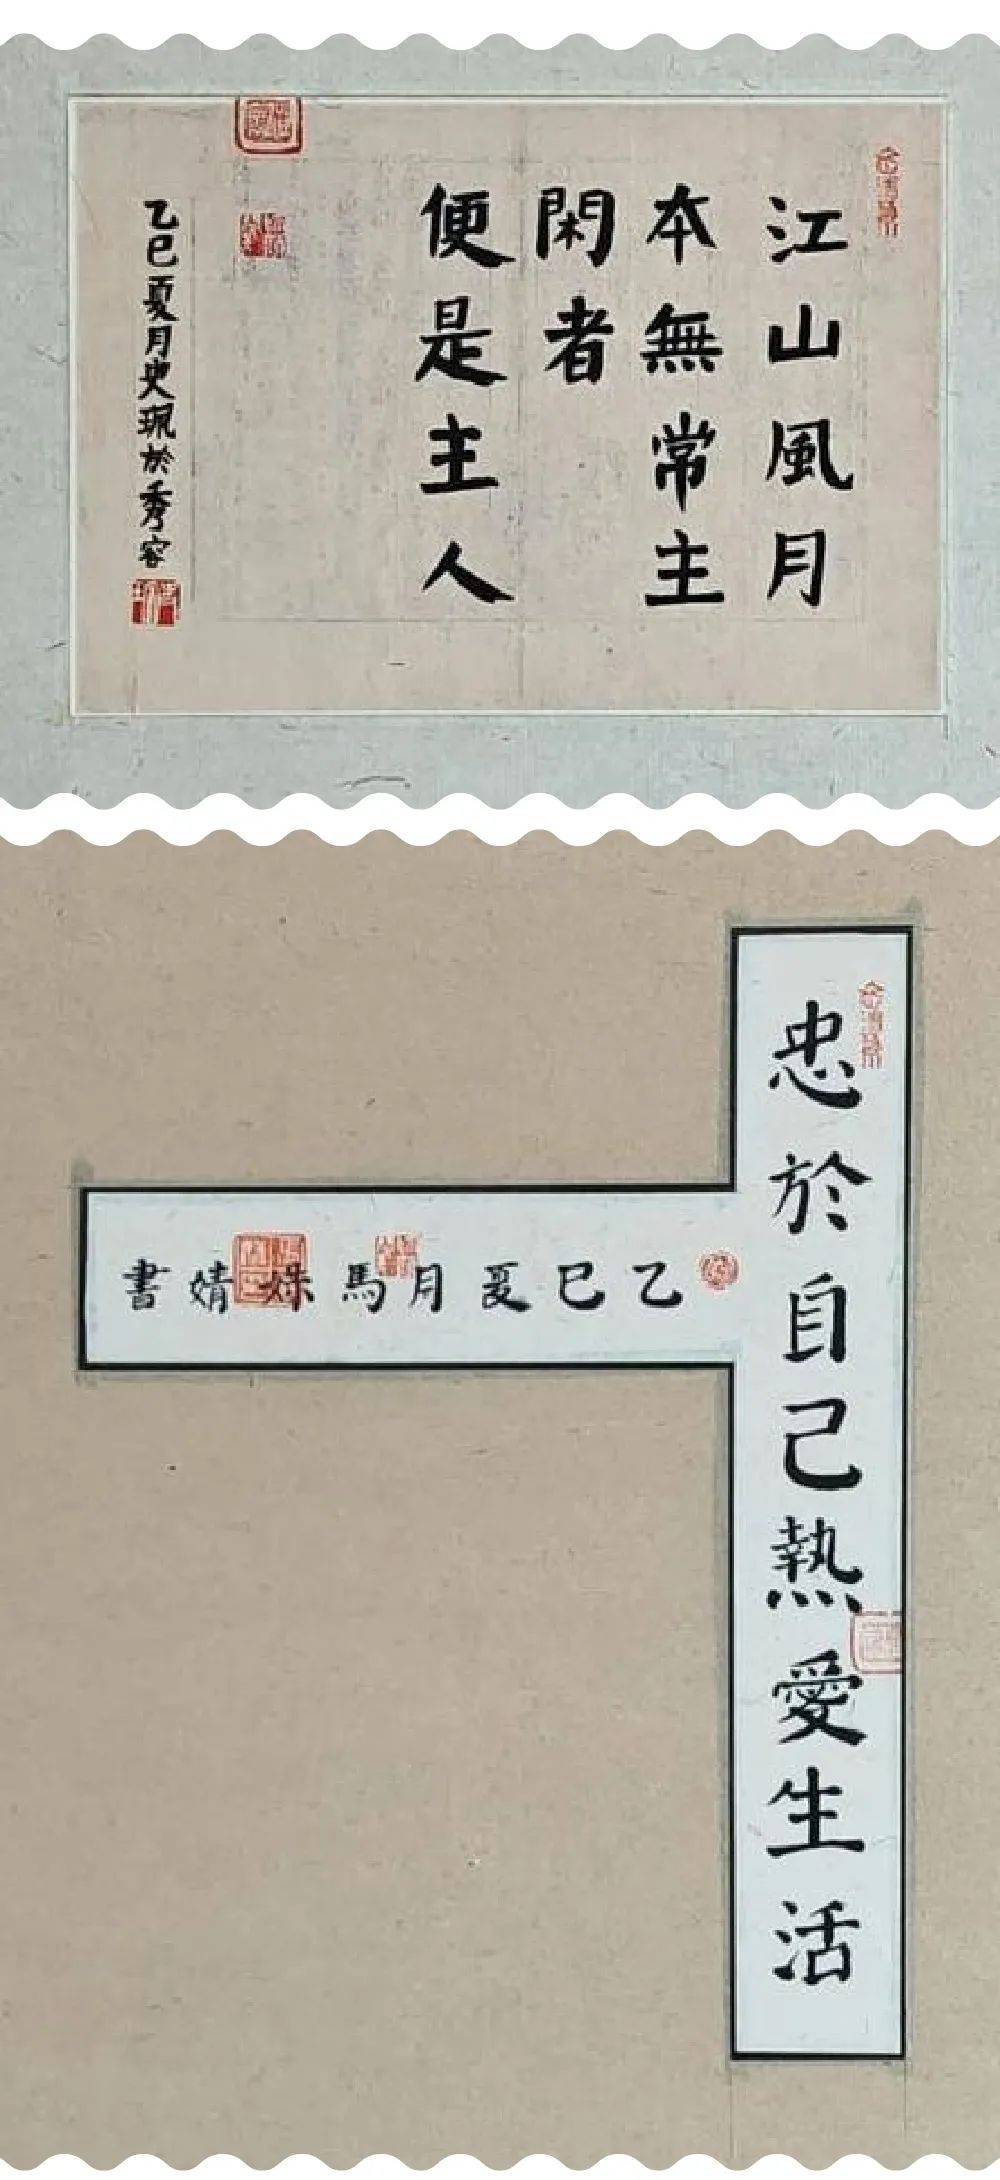 江山風月
本無常主
閑者
便是主人
乙巳夏月史珮於秀容
忠於自己熱愛生活
乙巳夏月馬姝婧書